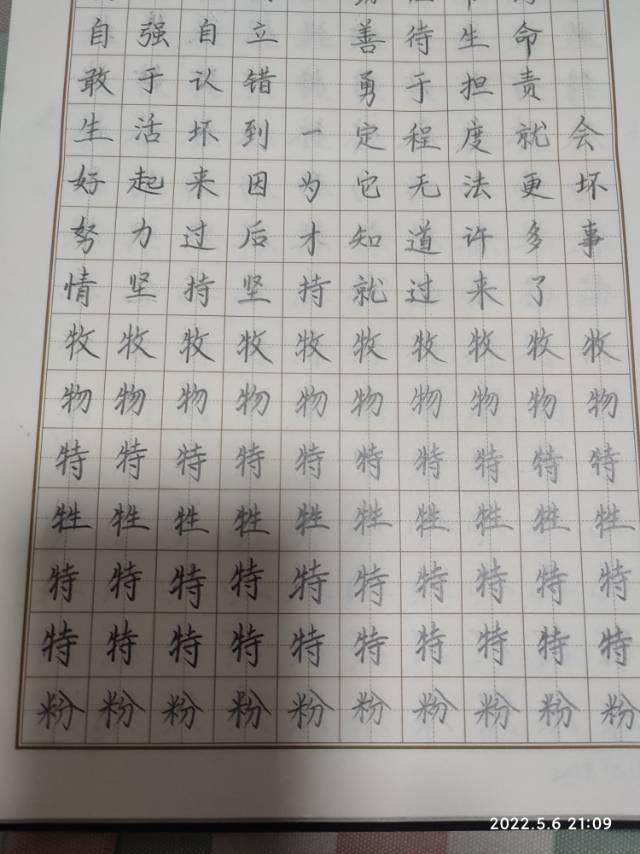 自强自立 善待生命
敢于认错 勇于担责
生活坏到一定程度就会
好起来因为它无法更坏
努力过后才知道许多事
情坚持坚持就过来了
牧牧牧牧牧牧牧牧牧牧
物物物物物物物物物物
特特特特特特特特特特
牲牲牲牲牲牲牲牲牲牲
特特特特特特特特特特
特特特特特特特特特特
粉粉粉粉粉粉粉粉粉粉
2022.5.6 21:09